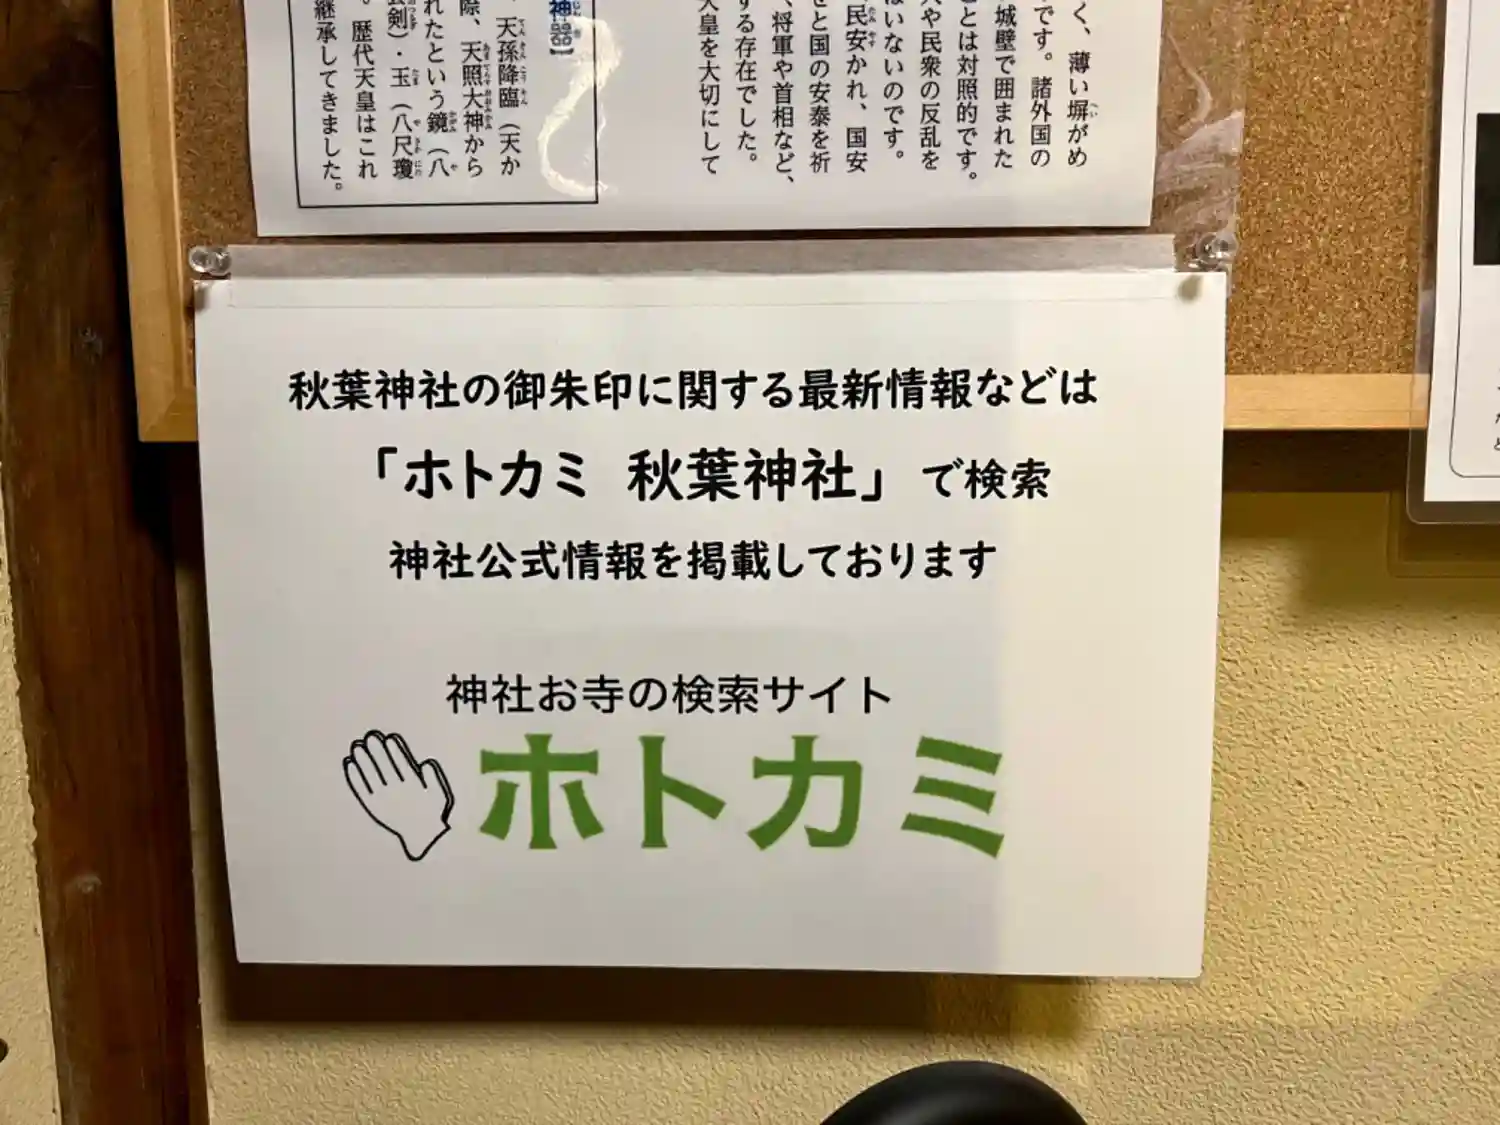 く、薄い塀がめ
です。諸外国の
城壁で囲まれた
とは対照的です。
や民衆の反乱を
はいないのです。
民安かれ、国安
せと国の安泰を祈
、将軍や首相など、
する存在でした。
天皇を大切にして
神器】
、天孫降臨（天か
際、天照大神から
れたという鏡（八
剣）・玉（八尺瓊
。歴代天皇はこれ
継承してきました。
秋葉神社の御朱印に関する最新情報などは
「ホトカミ 秋葉神社」で検索
神社公式情報を掲載しております
神社お寺の検索サイト
ホトカミ